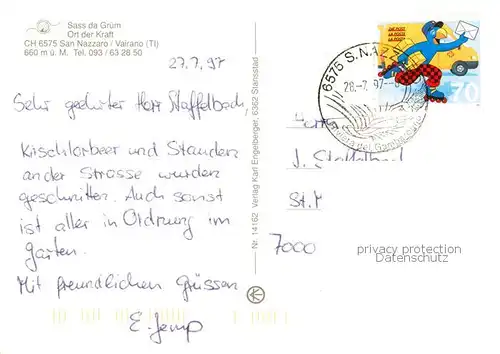 Sass da Grüm
Ort der Kraft
CH 6575 San Nazzaro / Vairano (TI)
660 m ü. M. Tel. 093 / 63 28 50
27.7.97
Sehr geehrter Herr Staffelbach,
Kirschlorbeer und Stauden
an der Strasse wurden
geschnitten. Auch sonst
ist alles in Ordnung im
Garten.
Mit freundlichen Grüssen
E.
Nr. 14162 Verlag Karl Engelberger, 6362 Stansstad
DIE POST
LA POSTE
LA POSTA
70
6575 S. NAZZ
28.-7.97
del Gambarogno
Herrn
J.
St.
7000
privacy protection
Datenschutz